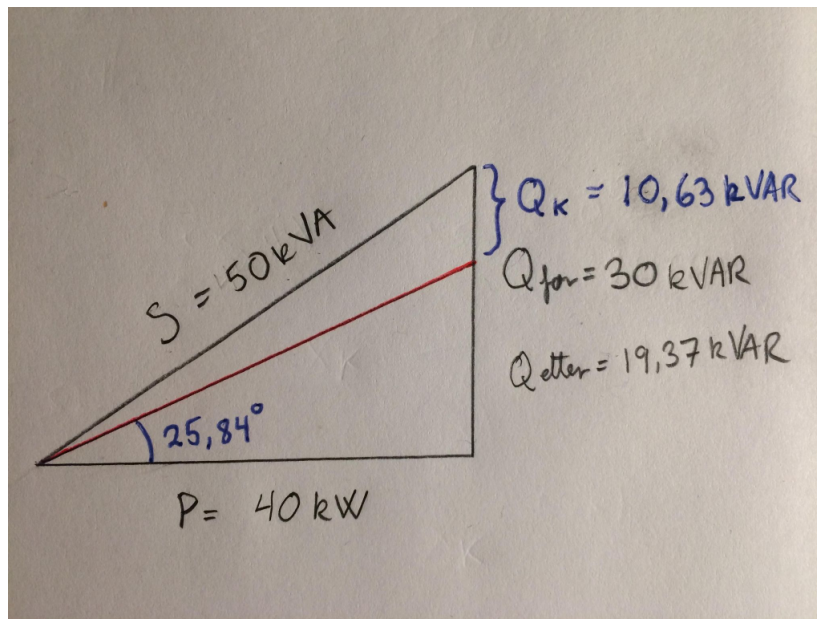 S = 50 kVA
QK = 10,63 kVAR
Qfør = 30 kVAR
Qetter = 19,37 kVAR
25,84°
P = 40 kW